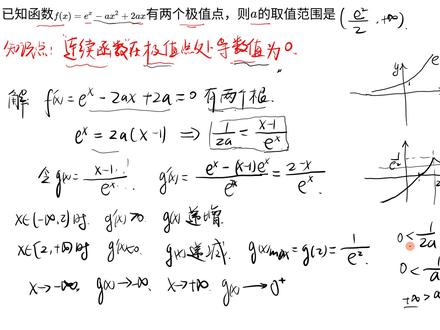 已知函数f(x)=e^x-ax^2+2ax有两个极值点，则a的取值范围是(e^2/2, +∞).
知识点：连续函数在极值点处导数值为0.
解 f'(x)=e^x-2ax+2a=0 有两个根.
e^x=2a(x-1) ⇒ 1/2a=x-1/e^x
令g(x)=x-1/e^x. g'(x)=e^x-(x-1)e^x/e^2x=2-x/e^x.
x∈(-∞,2)时 g'(x)>0 g(x)递增.
x∈[2,+∞)时 g'(x)<0. g(x)递减. g(x)max=g(2)=1/e^2.
x→-∞, g(x)→-∞, x→+∞. g(x)→0^+
y
e
1/e^2
2
0<1/2a
0<1/a
+∞>a